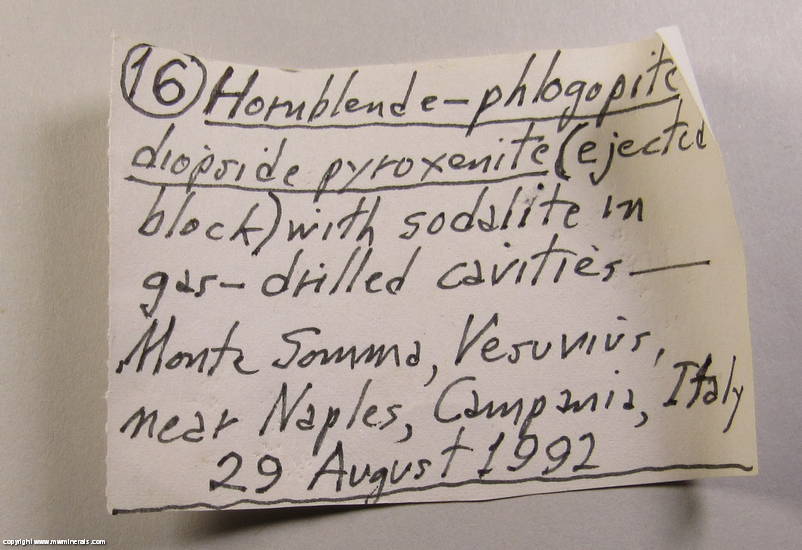 16 Hornblende-phlogopite
diopside pyroxenite (ejected
block) with sodalite in
gas-drilled cavities—
Monte Somma, Vesuvius,
near Naples, Campania, Italy
29 August 1992
copyright www.mwminerals.com